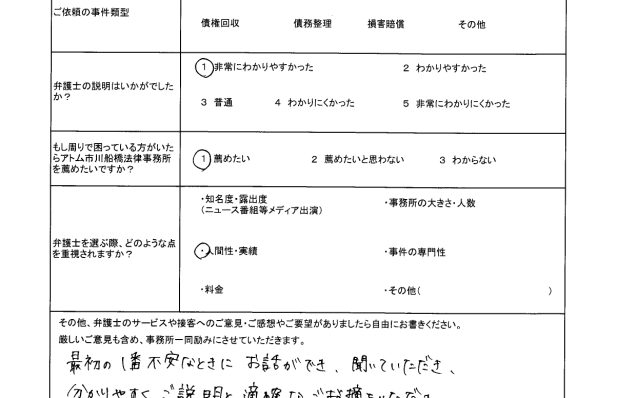 ご依頼の事件類型
債権回収 債務整理 損害賠償 その他
弁護士の説明はいかがでしたか?
1 非常にわかりやすかった 2 わかりやすかった
3 普通 4 わかりにくかった 5 非常にわかりにくかった
もし周りで困っている方がいた
らアトム市川船橋法律事務所
を薦めたいですか?
1 薦めたい 2 薦めたいと思わない 3 わからない
弁護士を選ぶ際、どのような点
を重視されますか?
・知名度・露出度
(ニュース番組等メディア出演)
・事務所の大きさ・人数
・人間性・実績
・事件の専門性
・料金
・その他( )
その他、弁護士のサービスや接客へのご意見・ご感想やご要望がありましたら自由にお書きください。
厳しいご意見も含め、事務所一同励みにさせていただきます。
最初の1番不安なときに お話ができ、聞いていただき、
分かりやすく ご説明と 適確な